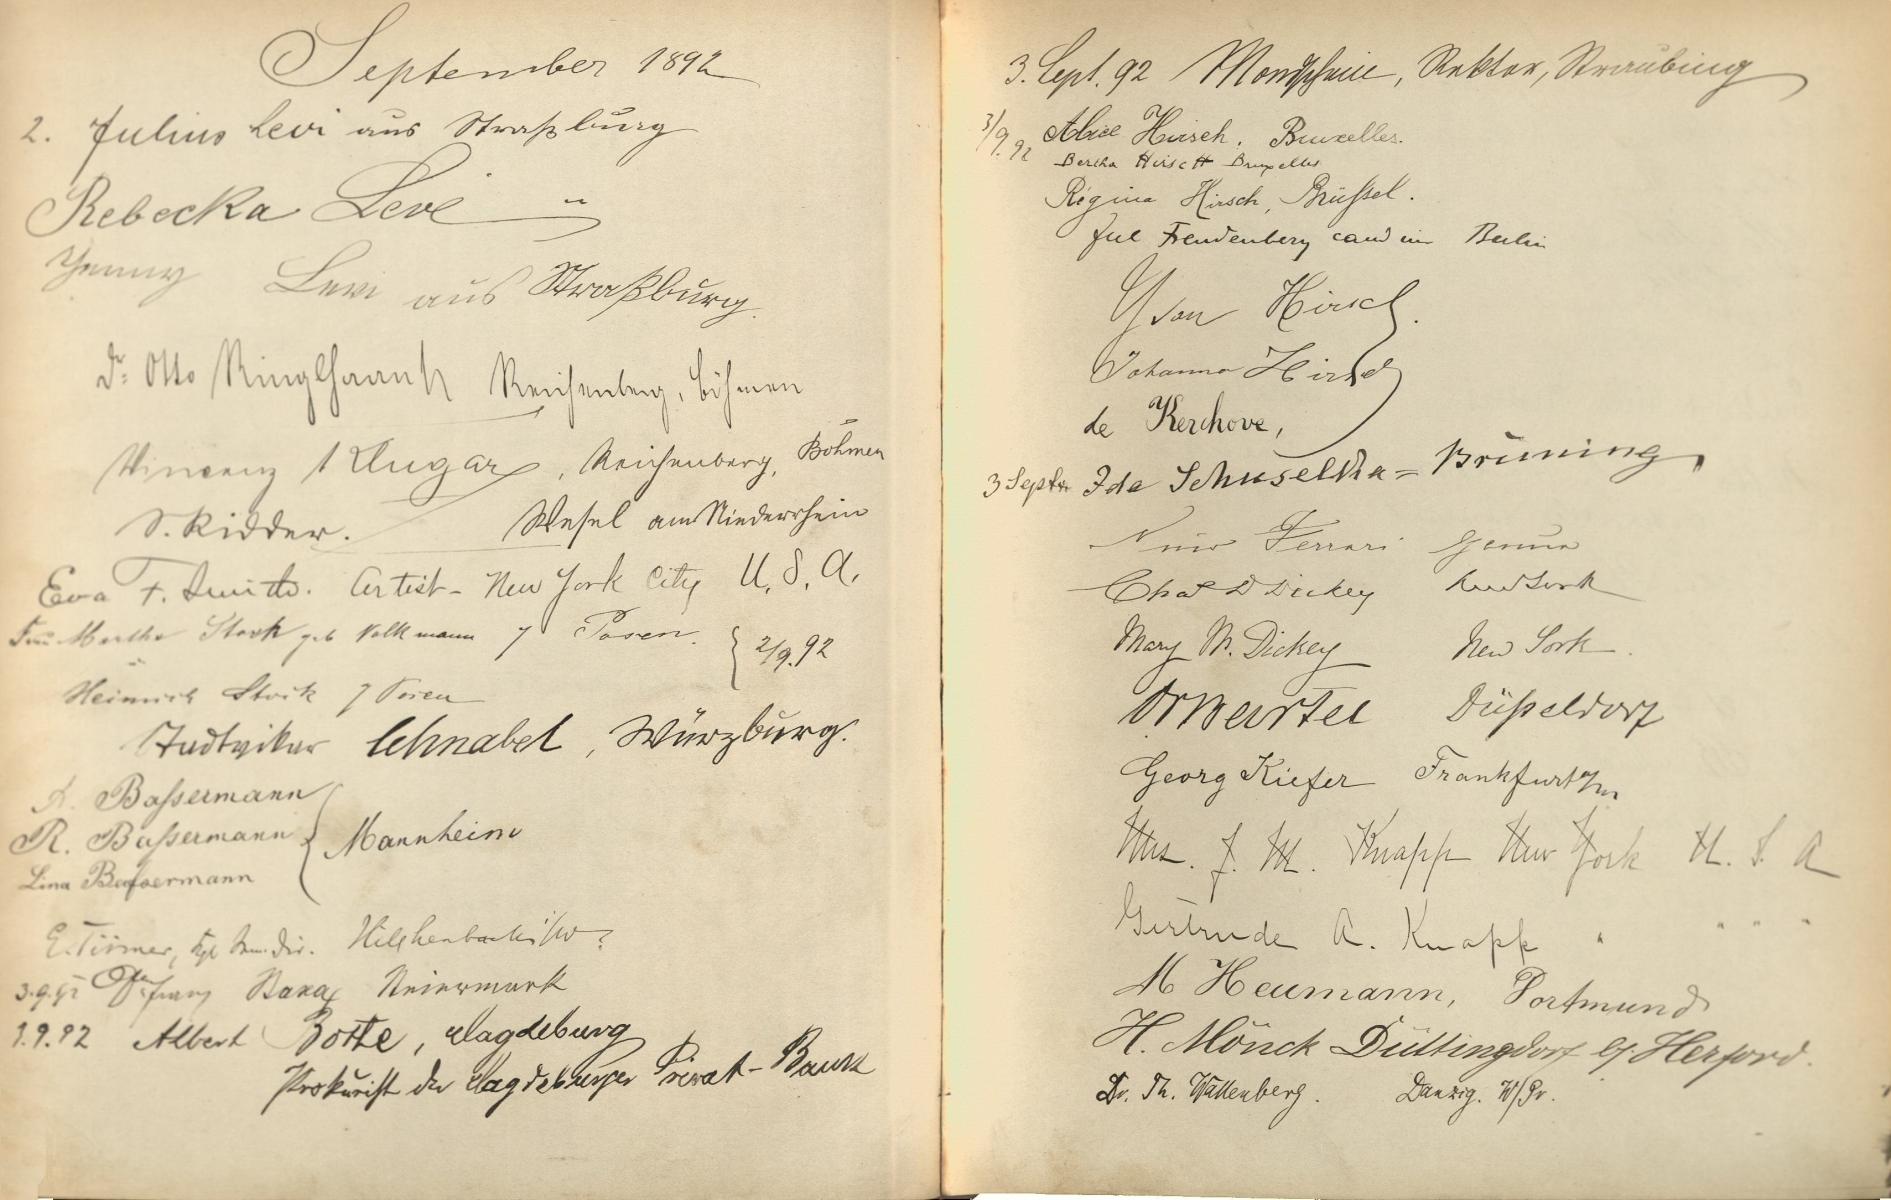 September 1892
2. Julius Levi aus Straßburg
Rebecka Levi "
Jenny Levi aus Straßburg.
Dr. Otto Ringlhaan Reichenberg, Böhmen
Vincenz Ungar, Reichenberg, Böhmen
S. Ridder. Wesel am Niederrhein
Eva F. Smith. Artist - New York City U. S. A.
Frau Martha Stark geb Volkmann Posen. 2/9.92
Heinrich Posen
Stadtvikar Schnabel, Würzburg.
A. Bassermann
R. Bassermann Mannheim
Lina Bassermann
E. Hilchenbach i/W
3.9.92 Franz Steiermark
1.9.92 Albert Botte, Magdeburg
Prokurist der Magdeburger Privat-Bank
3. Sept. 92 Rektor, Straubing
3/9.92 Alice Hirsch. Bruxelles.
Bertha Hirsch Bruxelles
Régina Hirsch, Brüssel.
Jul Freudenberg cand Berlin
Yvan Hirsch.
Johanna Hirsch
de Kerchove,
3 Septr Ida Schuselka=Brüning,
Nino Ferrari Genua
Chas D Dickey New York
Mary W. Dickey New York.
Düsseldorf
Georg Kiefer Frankfurt a/m
Mrs. J. M. Knapp New York U. S. A
Gertrude A. Knapp " " " "
M Heumann, Dortmund
H. Mönck Düttingdorf b/. Herford.
Dr. Th. Wallenberg. Danzig. W/Pr.